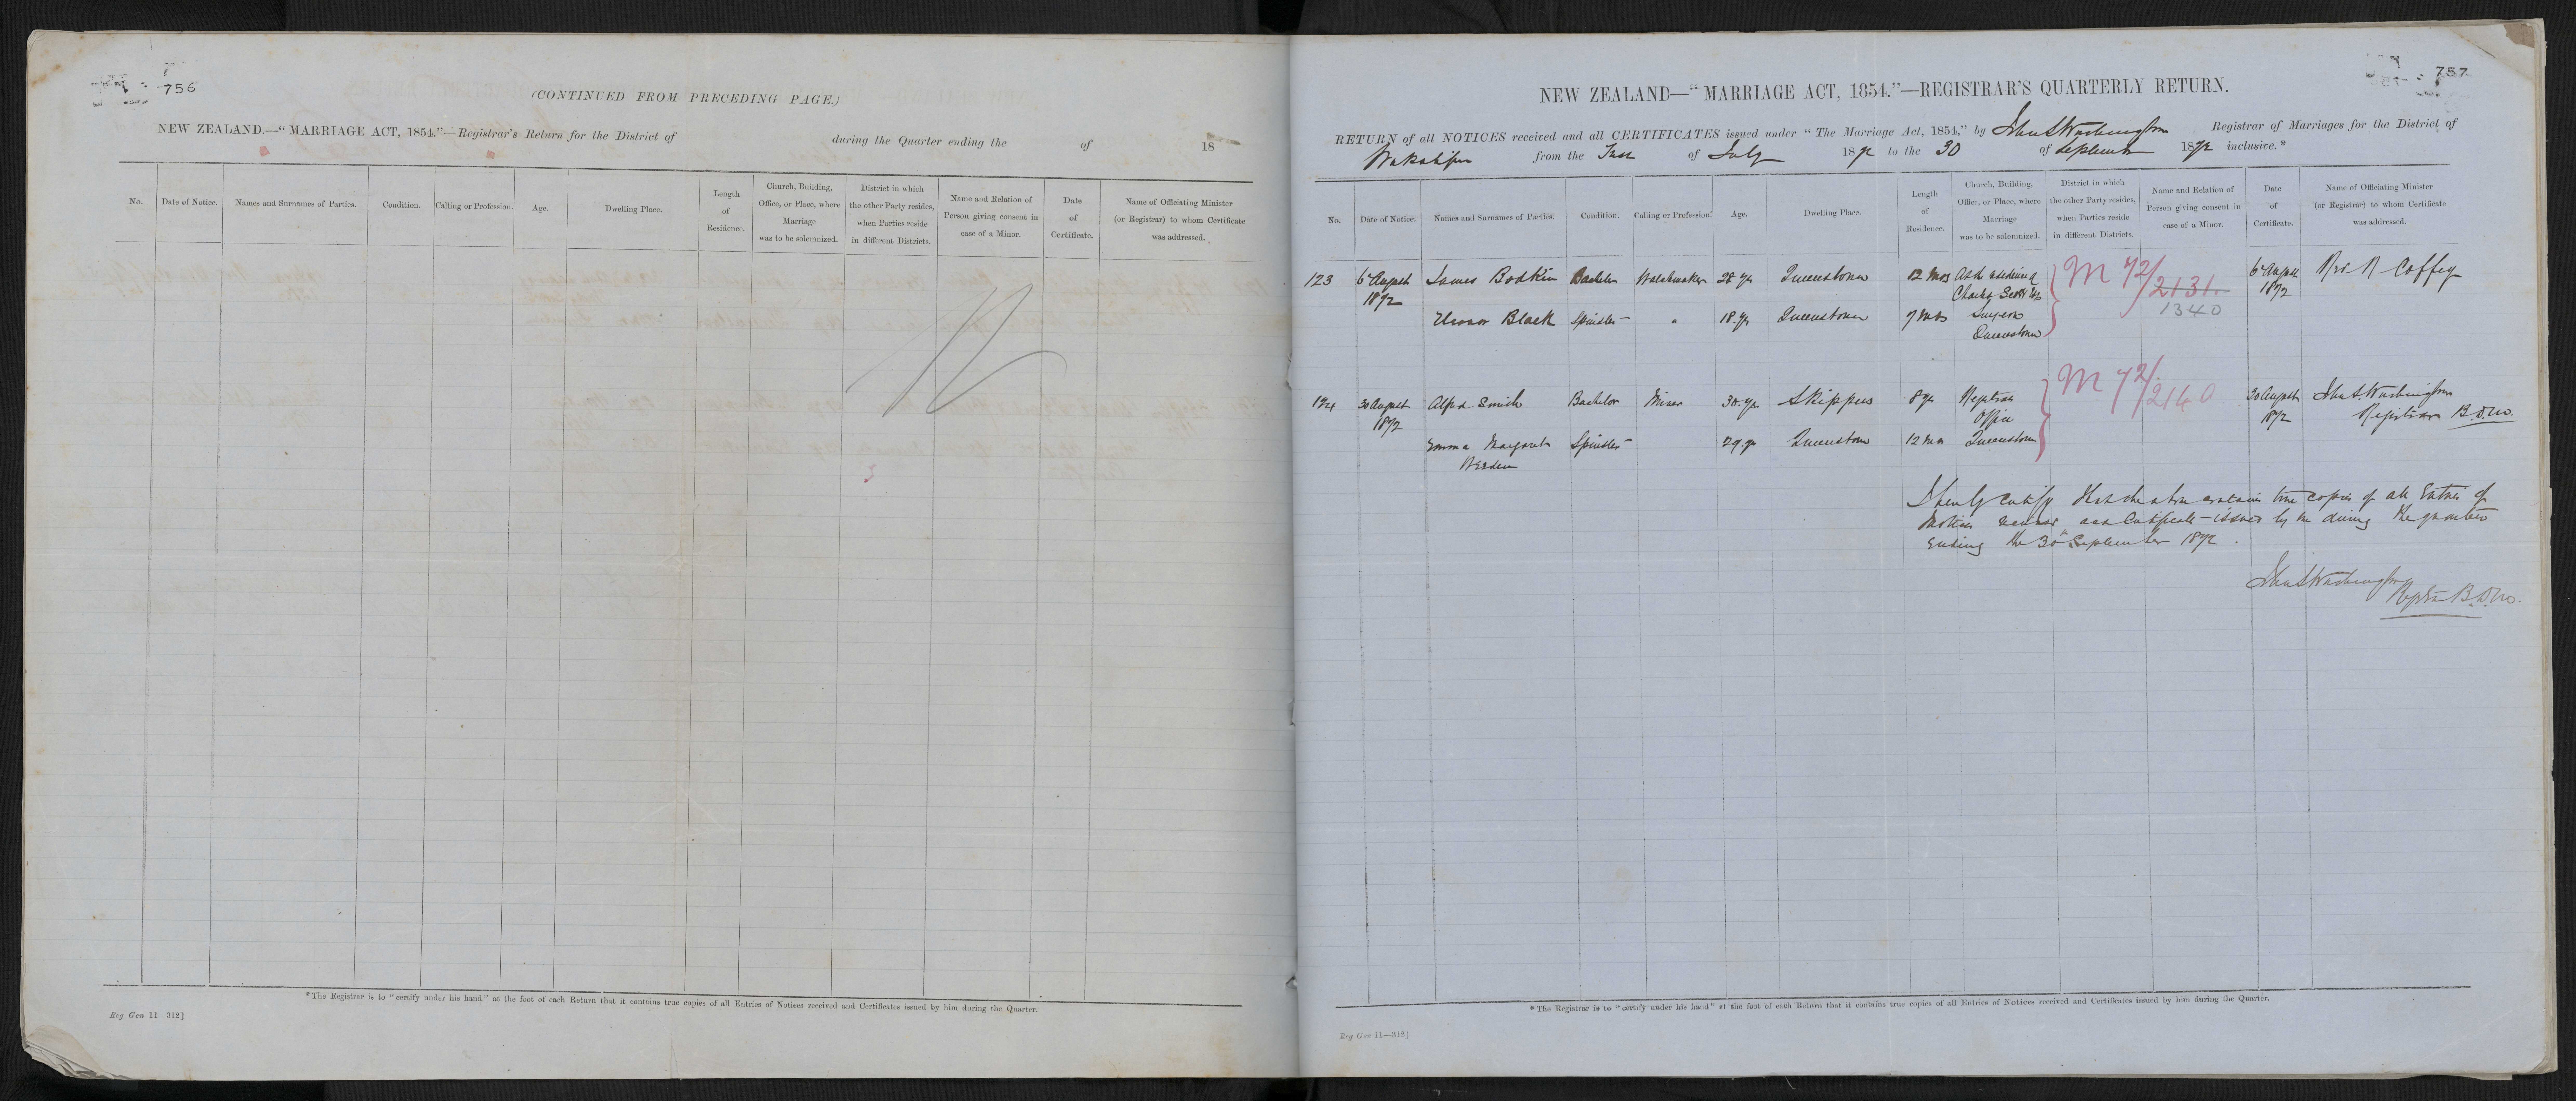 756
(CONTINUED FROM PRECEDING PAGE.)
NEW ZEALAND.—"MARRIAGE ACT, 1854."—Registrar's Return for the District of during the Quarter ending the of 18
No. Date of Notice. Names and Surnames of Parties. Condition. Calling or Profession. Age. Dwelling Place. Length of Residence. Church, Building, Office, or Place, where Marriage was to be solemnized. District in which the other Party resides, when Parties reside in different Districts. Name and Relation of Person giving consent in case of a Minor. Date of Certificate. Name of Officiating Minister (or Registrar) to whom Certificate was addressed.
*The Registrar is to "certify under his hand" at the foot of each Return that it contains true copies of all Entries of Notices received and Certificates issued by him during the Quarter.
Reg Gen 11—312]
757
NEW ZEALAND—"MARRIAGE ACT, 1854."—REGISTRAR'S QUARTERLY RETURN.
RETURN of all NOTICES received and all CERTIFICATES issued under "The Marriage Act, 1854," by Registrar of Marriages for the District of
Wakatipu from the of July 1872 to the 30 of September 1872 inclusive.*
No. Date of Notice. Names and Surnames of Parties. Condition. Calling or Profession. Age. Dwelling Place. Length of Residence. Church, Building, Office, or Place, where Marriage was to be solemnized. District in which the other Party resides, when Parties reside in different Districts. Name and Relation of Person giving consent in case of a Minor. Date of Certificate. Name of Officiating Minister (or Registrar) to whom Certificate was addressed.
123 6 August James Bodkin Bachelor Watchmaker 28 yrs Queenstown 12 Mos M 72/2131. 6 August Coffey
1872 Charles Scott 1340 1872
Eleanor Black Spinster " 18 yrs Queenstown 7 Mos Surgeon
Queenstown
124 30 August Alfred Smith Bachelor Miner 30 yrs Skippers 8 yrs Registrar M 72/2140 30 August John S Worthington
1872 Office 1872 Registrar B.D.M.
Emma Margaret Spinster 29 yrs Queenstown 12 Mos Queenstown
I hereby certify that the above contains true copies of all Entries of
Notices received and Certificates issued by me during the quarter
Ending the 30th September 1872.
John S Worthington
Registrar B.D.M.
*The Registrar is to "certify under his hand" at the foot of each Return that it contains true copies of all Entries of Notices received and Certificates issued by him during the Quarter.
Reg Gen 11—312]